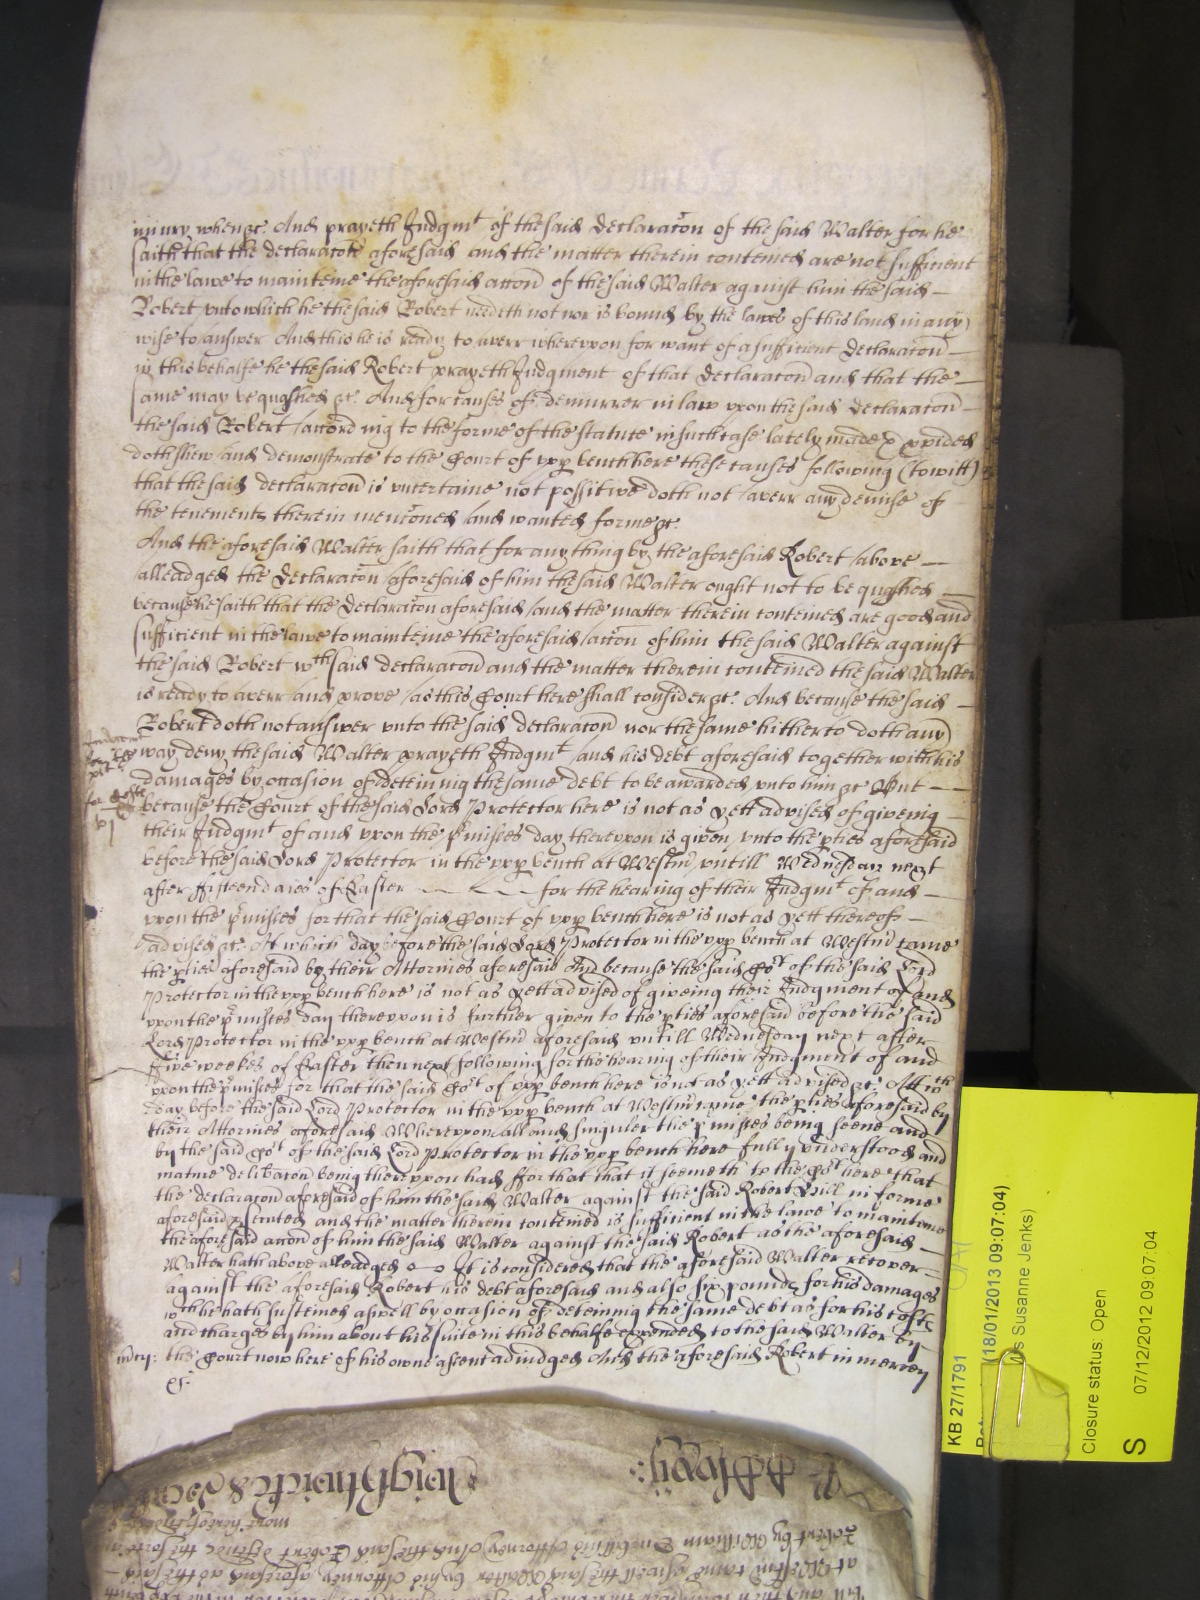 iniury when &c. And prayeth Judgmt of the said declaracon of the said Walter for he
saith that the declaracon aforesaid and the matter therein conteined are not sufficient
in the lawe to mainteine the aforesaid accon of the said Walter against him the said
Robert vnto which he the said Robert needeth not nor is bound by the lawes of this land in any
wise to answer And this he is ready to averr wherevpon for want of a sufficient declaracon
in this behalfe he the said Robert prayeth Judgment of that declaracon and that the
same may be quashed &c. And for causes of demurrer in law vpon the said declaracon
the said Robert according to the forme of the statute in such case lately made & pvided
doth shew and demonstrate to the Court of vpp bench here these causes following (to witt)
that the said declaracon is vncertaine not possitive doth not averr any demise of
the tenements therein menconed and wanteth forme &c.
And the aforesaid Walter saith that for any thing by the aforesaid Robert above
alleadged the declaracon aforesaid of him the said Walter ought not to be quashed
because he saith that the declaracon aforesaid and the matter therein conteined are good and
sufficient in the lawe to mainteine the aforesaid accon of him the said Walter against
the said Robert wch said declaracon and the matter therein conteined the said Walter
is ready to averr and prove as this Court here shall consider &c. And because the said
Robert doth not answer vnto the said declaracon nor the same hitherto doth any
way deny the said Walter prayeth Judgmt and his debt aforesaid together with his
damages by occasion of deteining the same debt to be awarded vnto him &c But
because the Court of the said Lord Protector here is not as yett advised of giveing
their Judgmt of and vpon the pmisses day therevpon is given vnto the pties aforesaid
before the said Lord Protector in the vpp bench at Westm vntill Wednesday next
after fifteen daies of Easter for the hearing of their Judgmt of and
vpon the pmisses for that the said Court of vpp bench here is not as yett thereof
advised &c. At which day before the said Lord Protector in the vpp bench at Westm came
the pties aforesaid by their Attornies aforesaid And because the said Cort of the said Lord
Protector in the vpp bench here is not as yett advised of giveing their Judgment of and
vpon the pmisses day therevpon is further given to the pties aforesaid before the said
Lord Protector in the vpp bench at Westm aforesaid vntill Wednesday next after
five weekes of Easter then next following for the hearing of their Judgment of and
vpon the pmisses for that the said Cort of vpp bench here is not as yett advised &c. At wch
day before the said Lord Protector in the vpp bench at Westm came the pties aforesaid by
their Attornies aforesaid Wherevpon all and singuler the pmisses being seene and
by the said Cort of the said Lord Protector in the vpp bench here fully vnderstood and
mature deliberacon being therevpon had ffor that that it seemeth to the Cort here that
the declaracon aforesaid of him the said Walter against the said Robert Hill in forme
aforesaid psecuted and the matter therein conteined is sufficient in the lawe to mainteine
the aforesaid accon of him the said Walter against the said Robert as the aforesaid
Walter hath above alleadged It is considered that the aforesaid Walter recover
against the aforesaid Robert his debt aforesaid and also six pounds for his damages
wch he hath susteined aswell by occasion of deteining the same debt as for his costs
and charges by him about his suite in this behalfe expended to the said Walter by
mcy: the Court now here of his owne assent adiudged And the aforesaid Robert in mercy
&c.
KB 27/1791
(18/01/2013 09:07:04)
Susanne Jenks)
Closure status: Open
S 07/12/2012 09:07:04